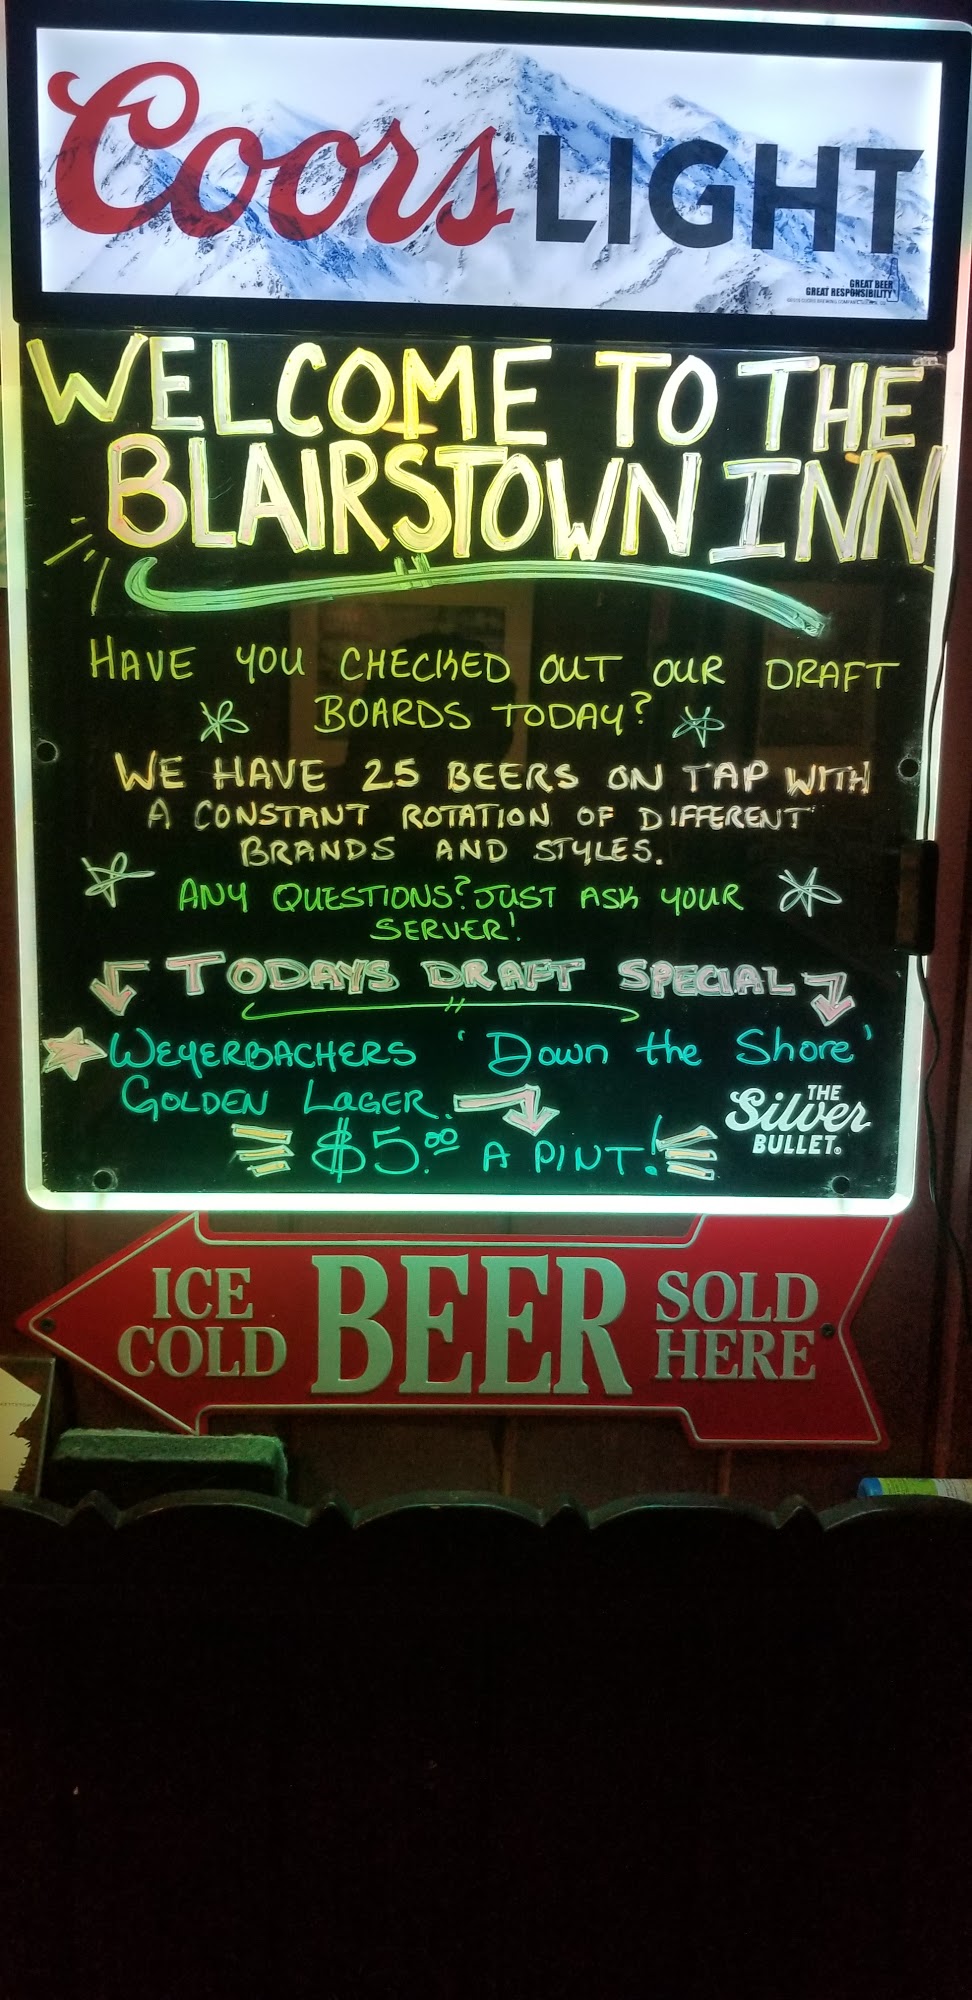 Coors LIGHT
GREAT BEER
GREAT RESPONSIBILITY
WELCOME TO THE
BLAIRSTOWN INN
HAVE YOU CHECKED OUT OUR DRAFT
BOARDS TODAY?
WE HAVE 25 BEERS ON TAP WITH
A CONSTANT ROTATION OF DIFFERENT
BRANDS AND STYLES.
ANY QUESTIONS? JUST ASK YOUR
SERVER!
TODAYS DRAFT SPECIAL
WEYERBACHERS 'Down the Shore'
GOLDEN LAGER.
$5.00 A PINT!
THE
Silver
BULLET.
ICE COLD BEER SOLD HERE